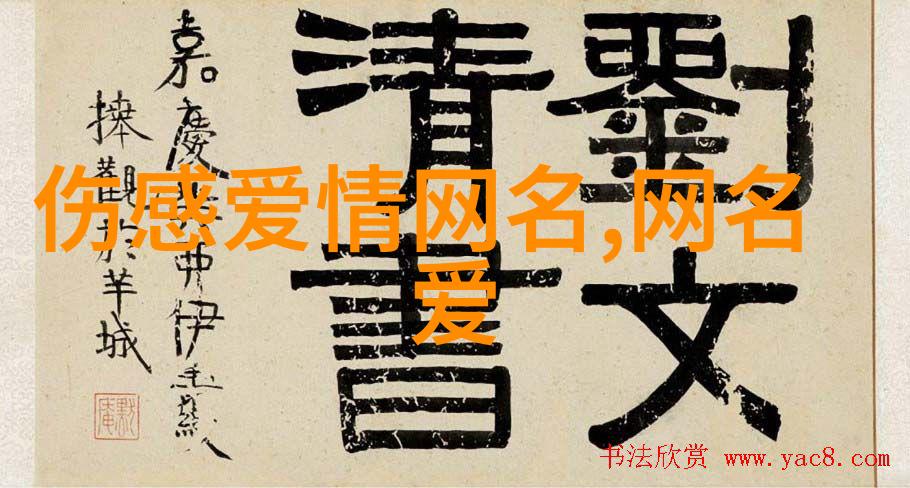 劉文
清書
嘉慶伊秉綬
捧觀於羊城
伤感爱情网名,网名
爱
书法欣赏 www.yac8.com